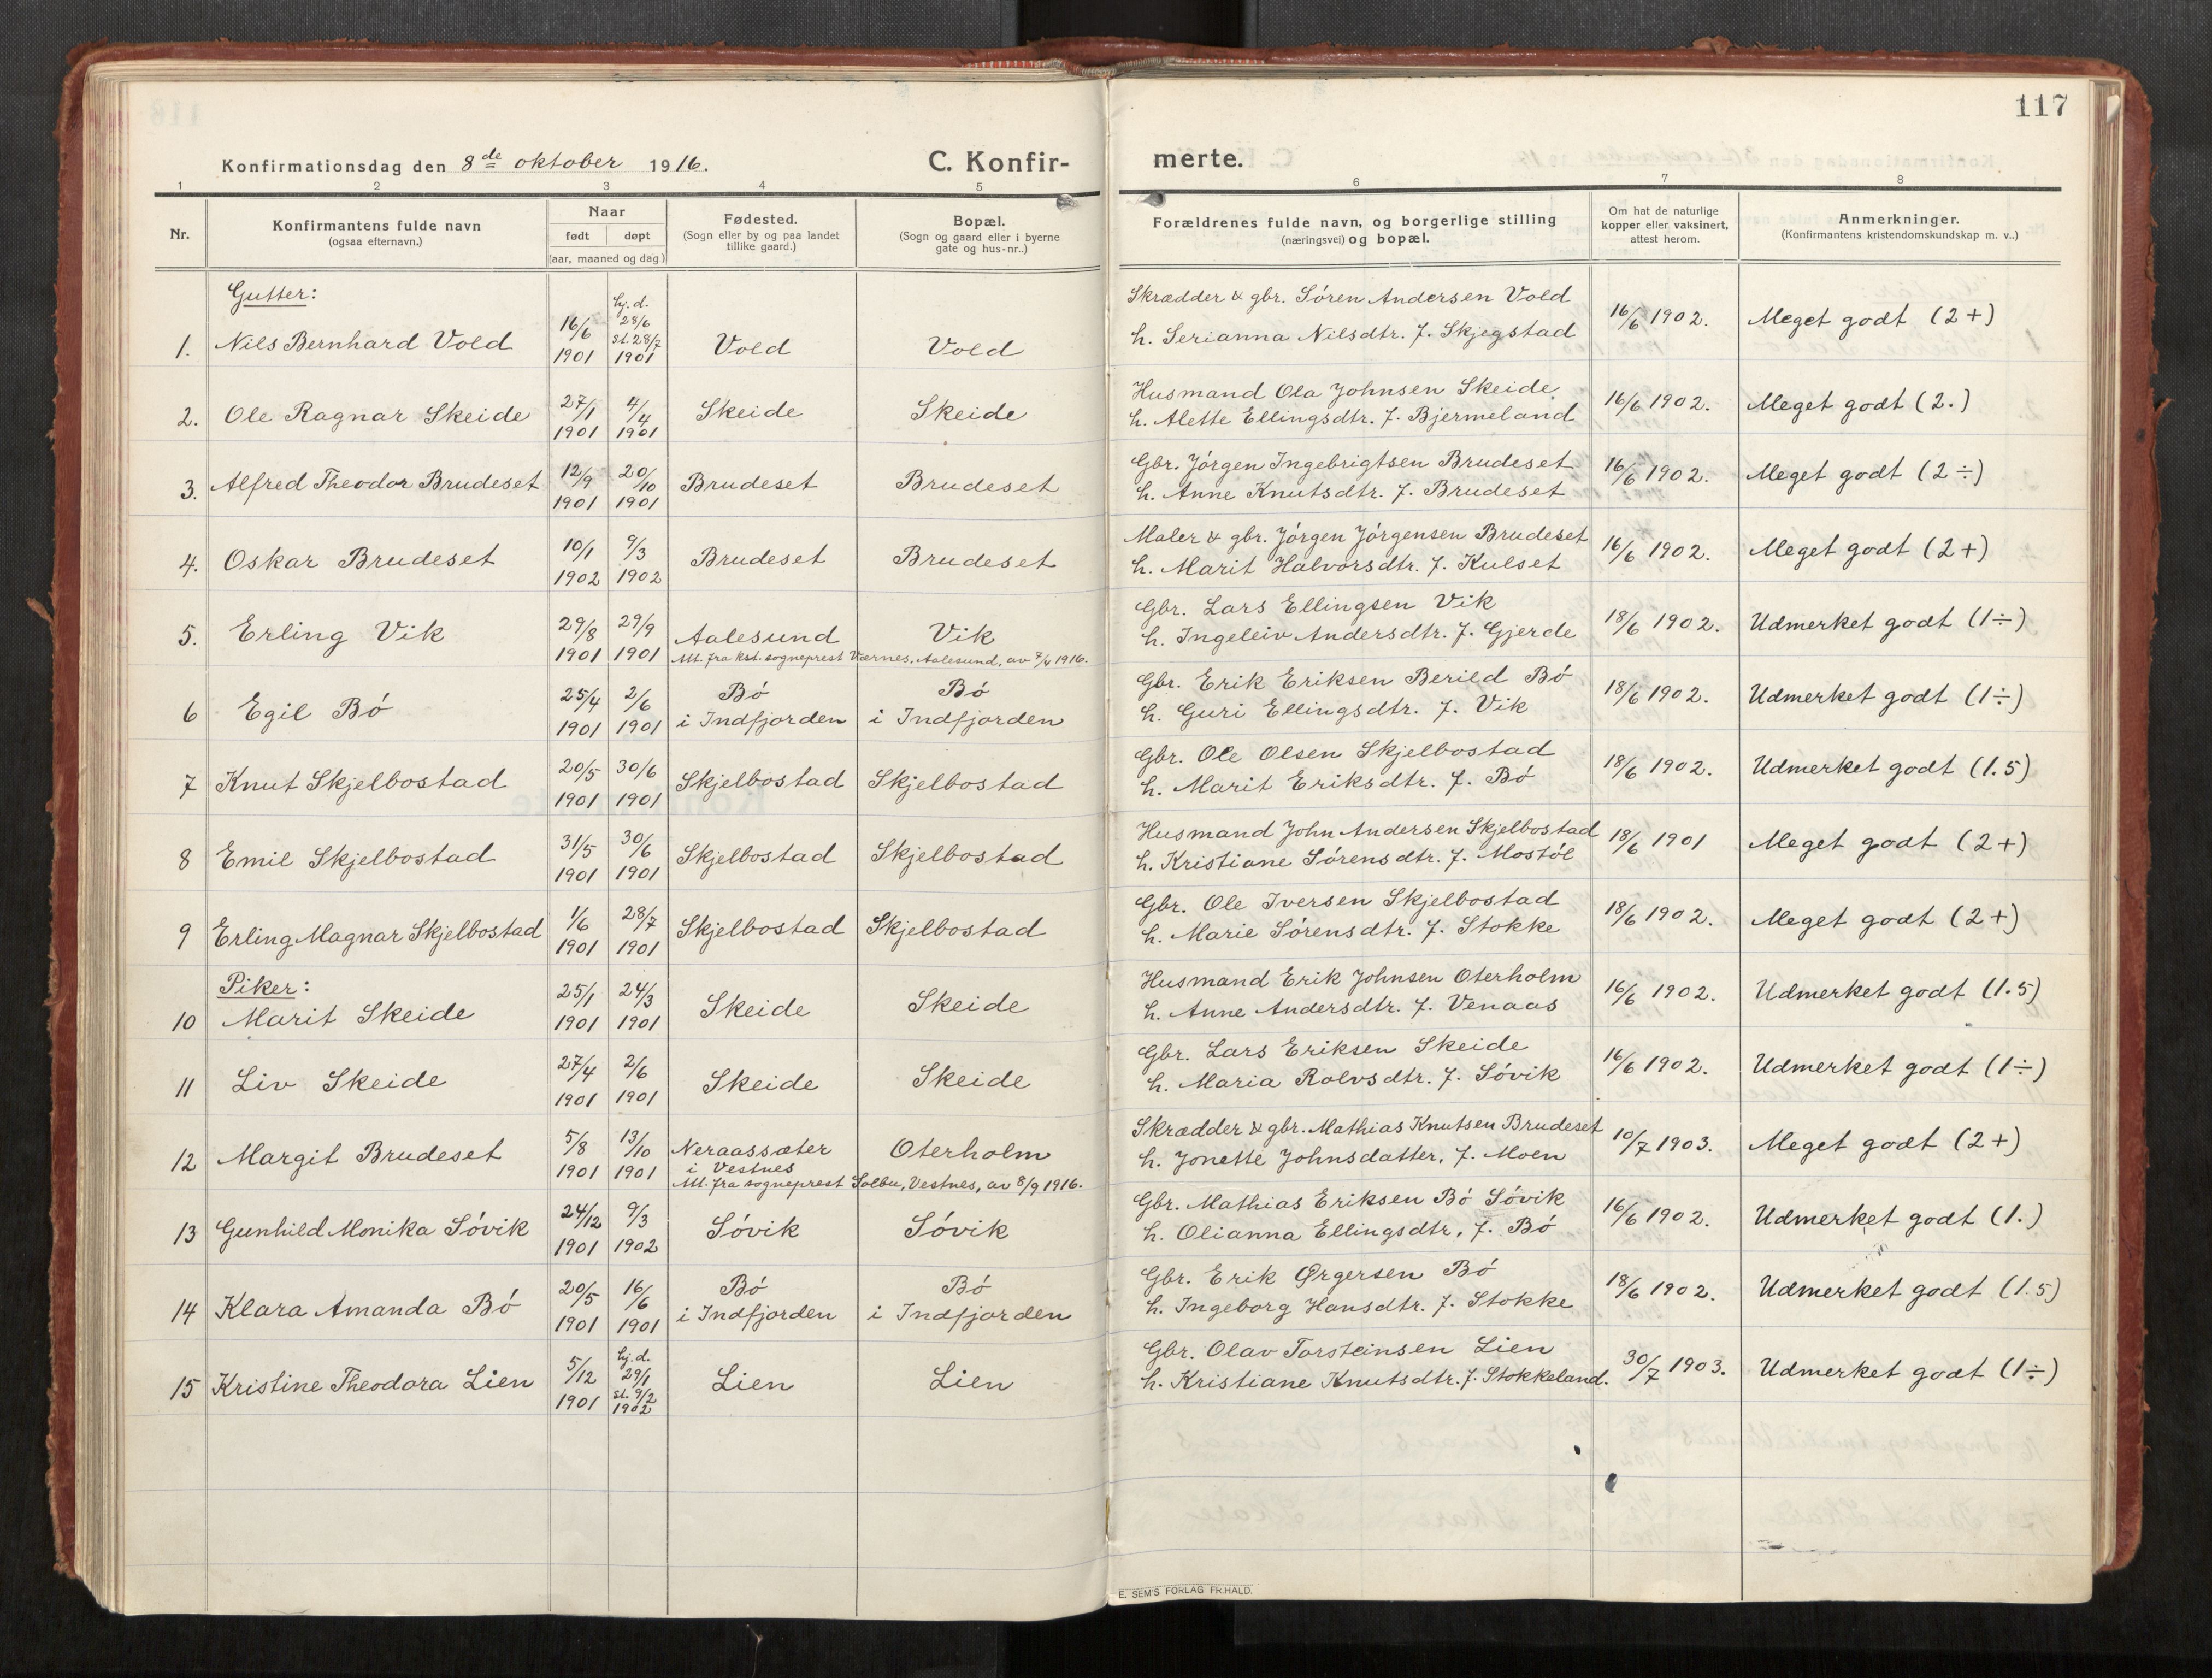 117
Konfirmationsdag den 8de oktober 1916. C. Konfir- merte.
1 2 3 4 5 6 7 8
Nr. | Konfirmantens fulde navn (ogsaa efternavn.) | Naar født døpt (aar, maaned og dag) | Fødested. (Sogn eller by og paa landet tillike gaard.) | Bopæl. (Sogn og gaard eller i byerne gate og hus-nr..) | Forældrenes fulde navn, og borgerlige stilling (næringsvei) og bopæl. | Om hat de naturlige kopper eller vaksinert, attest herom. | Anmerkninger. (Konfirmantens kristendomskundskap m. v..)
Gutter:
1. Nils Bernhard Vold | 16/6 1901 | hj. d. 28/6 st. 28/7 1901 | Vold | Vold | Skrædder & gbr. Sören Andersen Vold h. Serianna Nilsdtr. f. Skjegstad | 16/6 1902. | Meget godt (2+)
2. Ole Ragnar Skeide | 27/1 1901 | 4/4 1901 | Skeide | Skeide | Husmand Ola Johnsen Skeide, h. Alette Ellingsdtr. f. Bjermeland | 16/6 1902. | Meget godt (2.)
3. Alfred Theodor Brudeset | 12/9 1901 | 20/10 1901 | Brudeset | Brudeset | Gbr. Jörgen Ingebrigtsen Brudeset h. Anne Knutsdtr. f. Brudeset | 16/6 1902. | Meget godt (2÷)
4. Oskar Brudeset | 10/1 1902 | 9/3 1902 | Brudeset | Brudeset | Maler & gbr. Jörgen Jörgensen Brudeset h. Marit Halvorsdtr. f. Kulset | 16/6 1902. | Meget godt (2+)
5. Erling Vik | 29/8 1901 | 29/9 1901 | Aalesund | Vik | Gbr. Lars Ellingsen Vik h. Ingeleiv Andersdtr. f. Gjerde | 18/6 1902. | Udmerket godt (1÷)
Att. fra kst. sogneprest Værnes, Aalesund, av 7/4 1916.
6 Egil Bö | 25/4 1901 | 2/6 1901 | Bö i Indfjorden | Bö i Indfjorden | Gbr. Erik Eriksen Berild Bö h. Guri Ellingsdtr. f. Vik | 18/6 1902. | Udmerket godt (1÷)
7 Knut Skjelbostad | 20/5 1901 | 30/6 1901 | Skjelbostad | Skjelbostad | Gbr. Ole Olsen Skjelbostad h. Marit Eriksdtr. f. Bö | 18/6 1902. | Udmerket godt (1.5)
8 Emil Skjelbostad | 31/5 1901 | 30/6 1901 | Skjelbostad | Skjelbostad | Husmand John Andersen Skjelbostad h. Kristiane Sörensdtr. f. Mostöl | 18/6 1901 | Meget godt (2+)
9 Erling Magnar Skjelbostad | 1/6 1901 | 28/7 1901 | Skjelbostad | Skjelbostad | Gbr. Ole Iversen Skjelbostad h. Marie Sörensdtr. f. Stokke | 18/6 1902. | Meget godt (2+)
Piker:
10 Marit Skeide | 25/1 1901 | 24/3 1901 | Skeide | Skeide | Husmand Erik Johnsen Oterholm h. Anne Andersdtr. f. Venaas | 16/6 1902. | Udmerket godt (1.5)
11 Liv Skeide | 27/4 1901 | 2/6 1901 | Skeide | Skeide | Gbr. Lars Eriksen Skeide h. Maria Rolvsdtr. f. Sövik | 16/6 1902. | Udmerket godt (1÷)
12 Margit Brudeset | 5/8 1901 | 13/10 1901 | Neraassæter i Vestnes | Oterholm | Skrædder & gbr. Mathias Knutsen Brudeset h. Jonette Johnsdatter, f. Moen | 10/7 1903. | Meget godt (2+)
Att. fra sogneprest Solbu, Vestnes, av 8/9 1916.
13 Gunhild Monika Sövik | 24/12 1901 | 9/3 1902 | Sövik | Sövik | Gbr. Mathias Eriksen Bö Sövik h. Olianna Ellingsdtr, f. Bö | 16/6 1902. | Udmerket godt (1.)
14 Klara Amanda Bö | 20/5 1901 | 16/6 1901 | Bö i Indfjorden | Bö i Indfjorden | Gbr. Erik Ørgersen Bö h. Ingeborg Hansdtr. f. Stokke | 18/6 1902. | Udmerket godt (1.5)
15 Kristine Theodora Lien | 5/12 1901 | hj. d. 29/1 st. 9/2 1902 | Lien | Lien | Gbr. Olav Torsteinsen Lien h. Kristiane Knutsdtr. f. Stokkeland. | 30/7 1903. | Udmerket godt (1÷)
E. SEM'S FORLAG FR.HALD.